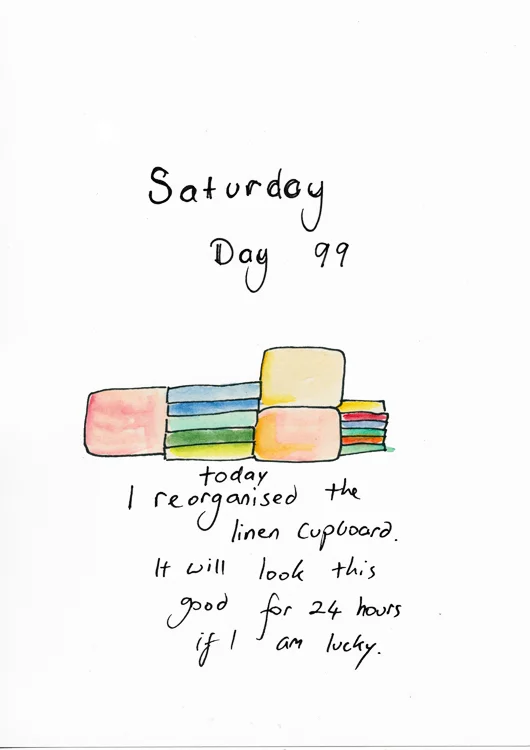 Saturday
Day 99
today
I reorganised the
linen cupboard.
It will look this
good for 24 hours
if I am lucky.